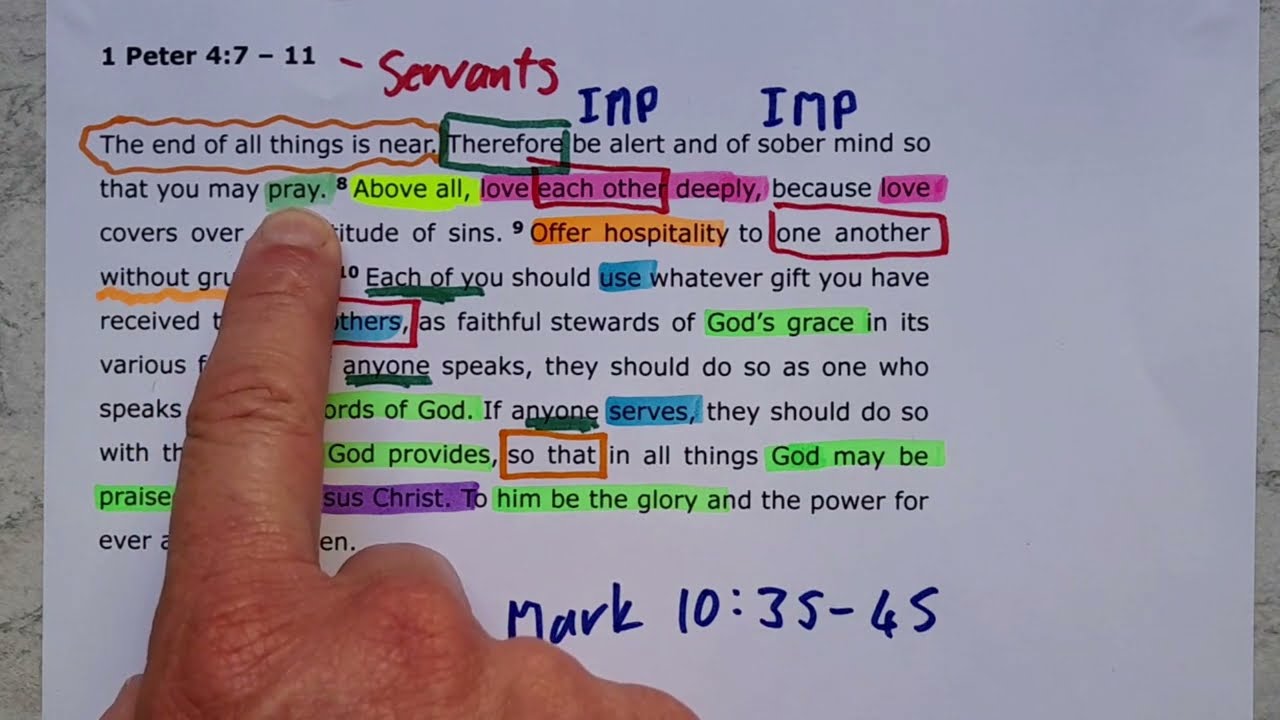 1 Peter 4:7 – 11 - Servants
Imp Imp
The end of all things is near. Therefore be alert and of sober mind so
that you may pray. 8 Above all, love each other deeply, because love
covers over titude of sins. 9 Offer hospitality to one another
without gru 10 Each of you should use whatever gift you have
received t others, as faithful stewards of God's grace in its
various f anyone speaks, they should do so as one who
speaks ords of God. If anyone serves, they should do so
with th God provides, so that in all things God may be
praise sus Christ. To him be the glory and the power for
ever a en.
Mark 10:35-45